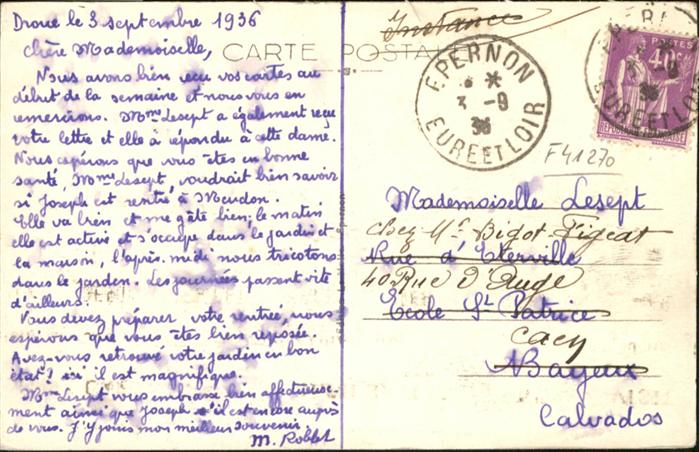 Droue le 3 septembre 1936
Chère Mademoiselle,
CARTE POSTALE
Nous avons bien reçu vos cartes au
début de la semaine et nous vous en
remercions. Mme Lesept a également reçu
votre lettre et elle à répondu à cette dame.
Nous espérons que vous êtes en bonne
santé, Mme Lesept, voudrait bien savoir
si Joseph est rentré à Meudon.
Elle va bien et me gâte bien; le matin
elle est active et s'occupe dans le jardin et
la maison, l'après-midi nous tricotons
dans le jardin. Les journées passent vite
d'ailleurs.
Vous devez préparer votre rentrée, nous
espérons que vous êtes bien reposée.
Avez-vous retrouvé votre jardin en bon
état? ici il est magnifique.
Mme Lesept vous embrasse bien affectueuse-
ment ainsi que Joseph s'il est encore auprès
de vous. J'y joins mon meilleur souvenir.
M. Roblet
Instance
EPERNON
3 -9
36
EURE ET LOIR
POSTES
40c
EURE ET LOIR
F41270
Mademoiselle Lesept
chez Mr Bigot Figeat
Rue d'Eterville
40 Rue d'Auge
Ecole St Patrice
Caen
Bayeux
Calvados